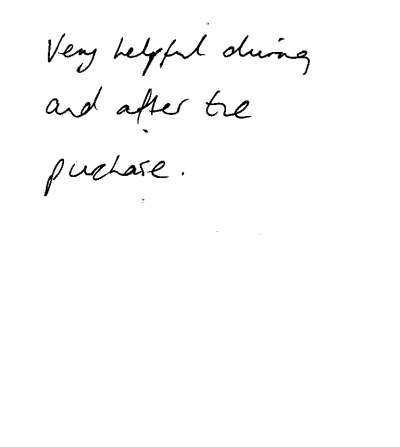 Very helpful during
and after the
puchase.